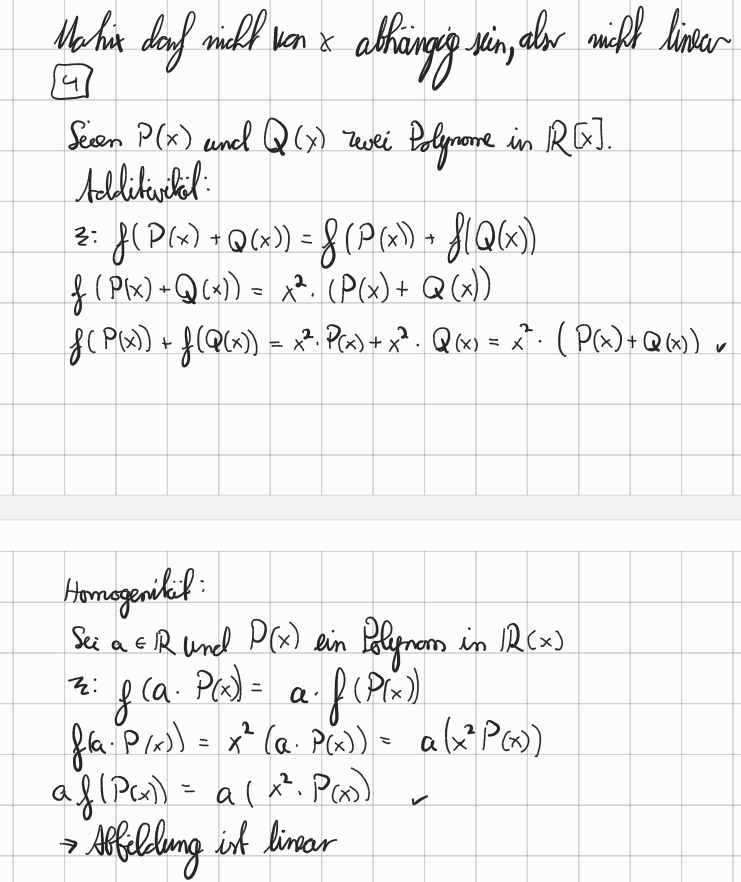 Matrix darf nicht von x abhängig sein, also nicht linear
4
Seien P(x) und Q(x) zwei Polynome in ℝ[x].
Additivität:
z: f(P(x) + Q(x)) = f(P(x)) + f(Q(x))
f(P(x) + Q(x)) = x² · (P(x) + Q(x))
f(P(x)) + f(Q(x)) = x² · P(x) + x² · Q(x) = x² · (P(x) + Q(x)) ✓
Homogenität:
Sei a ∈ ℝ und P(x) ein Polynom in ℝ(x)
z: f(a · P(x)) = a · f(P(x))
f(a · P(x)) = x² (a · P(x)) = a(x² P(x))
a f(P(x)) = a(x² · P(x)) ✓
→ Abbildung ist linear